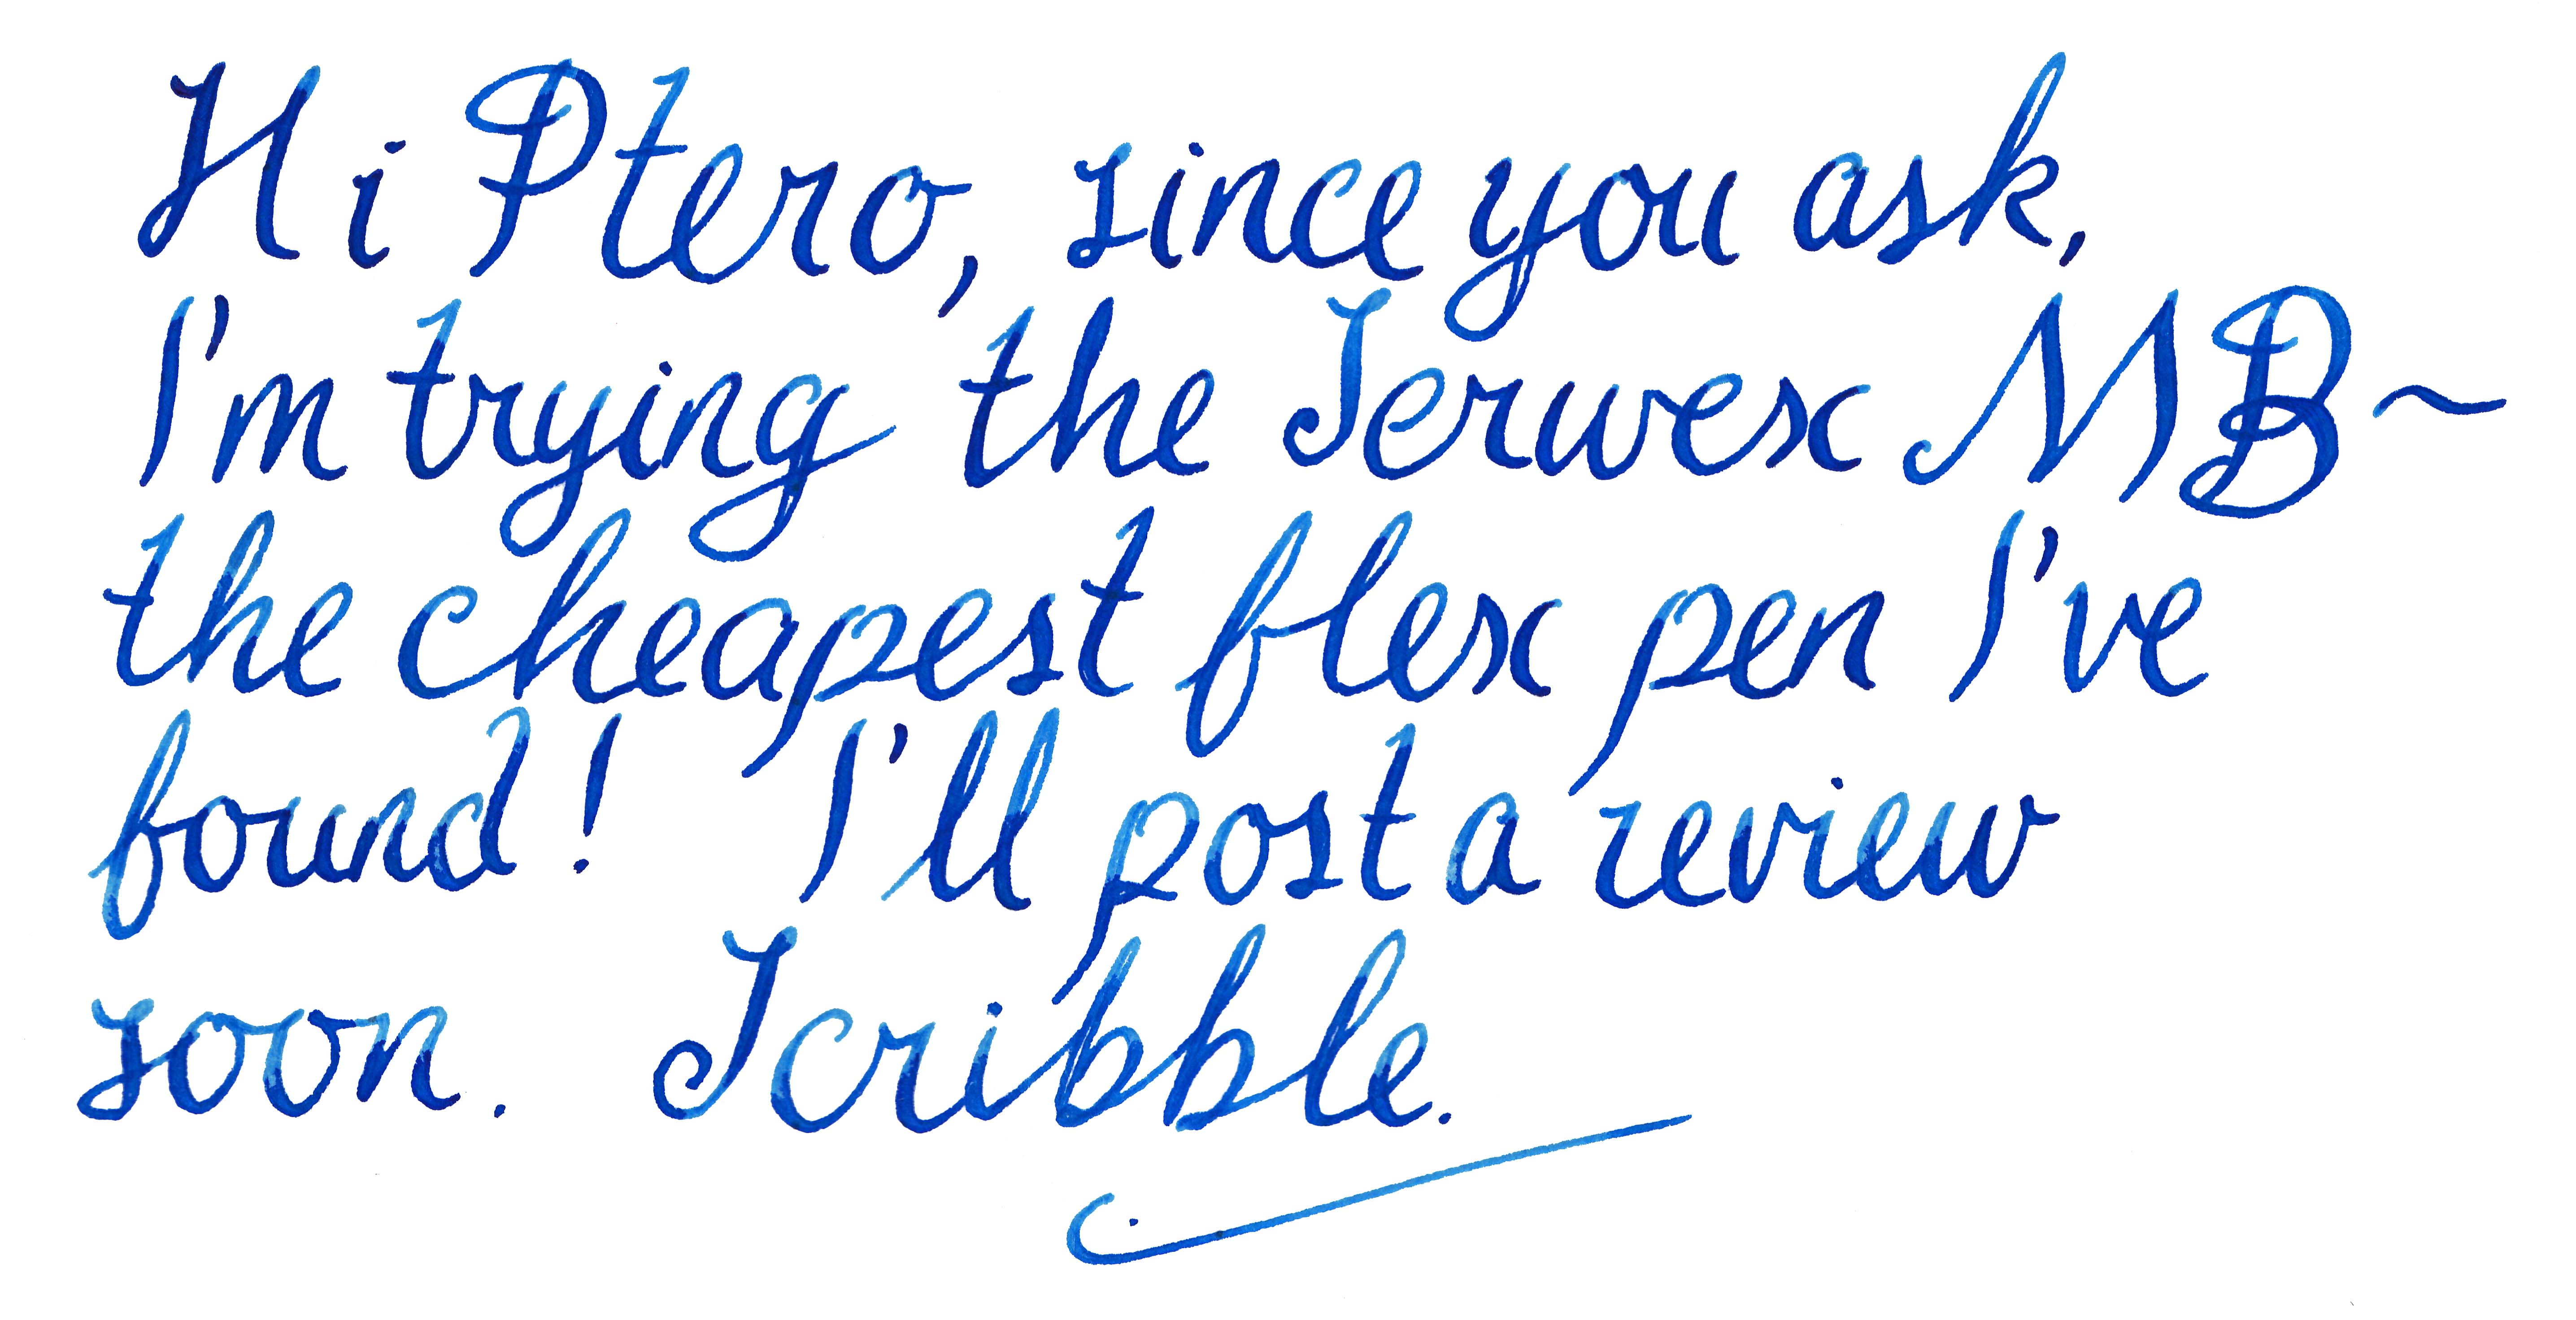 Hi Ptero, since you ask,
I'm trying the Serwex MB~
the cheapest flex pen I've
found! I'll post a review
soon. Scribble.